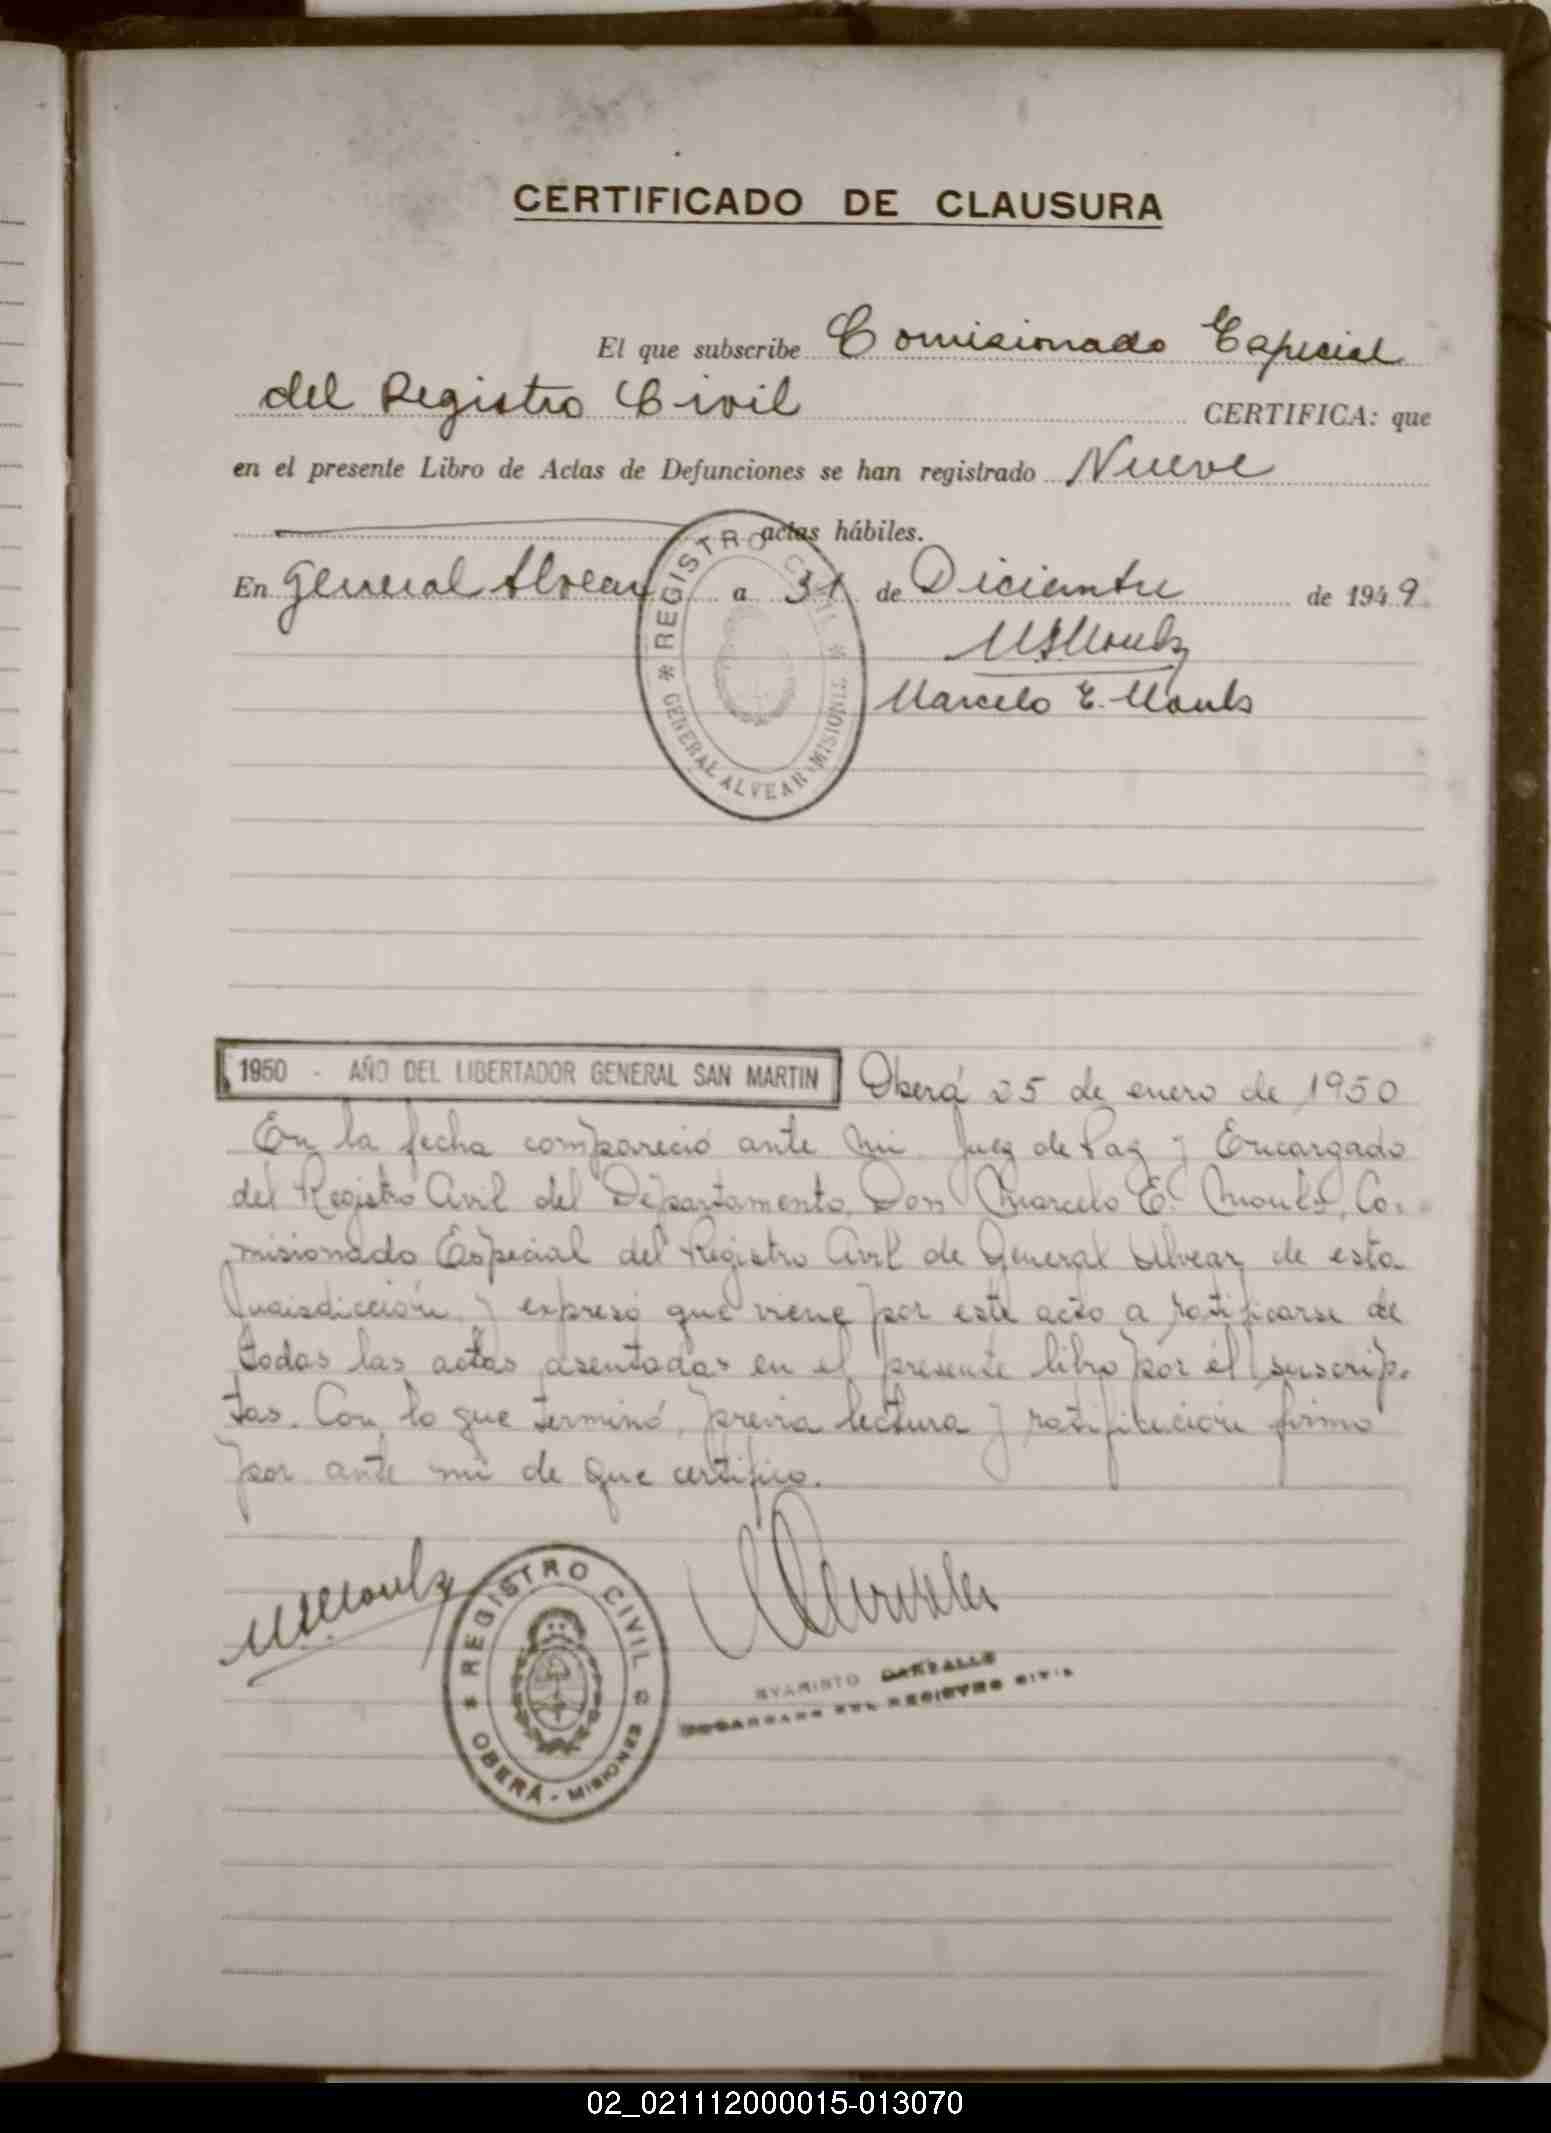 CERTIFICADO DE CLAUSURA
El que subscribe Comisionado Especial
del Registro Civil CERTIFICA: que
en el presente Libro de Actas de Defunciones se han registrado Nueve
actas hábiles.
En General Alvear a 31 de Diciembre de 1949
Marcelo E.
REGISTRO CIVIL
GENERAL ALVEAR (MISIONES)
1950 - AÑO DEL LIBERTADOR GENERAL SAN MARTIN Oberá 25 de enero de 1950
En la fecha compareció ante mi Juez de Paz y Encargado
del Registro Civil del Departamento, Don Marcelo E. Co-
misionado Especial del Registro Civil de General Alvear, de esta
Jurisdicción y expresó que viene por este acto a ratificarse de
todas las actas asentadas en el presente libro por él suscrip-
tas. Con lo que terminó, previa lectura y ratificación firmo
por ante mi de que certifico.
REGISTRO CIVIL
OBERÁ - MISIONES
EVARISTO
ENCARGADO DEL REGISTRO CIVIL
02_021112000015-013070